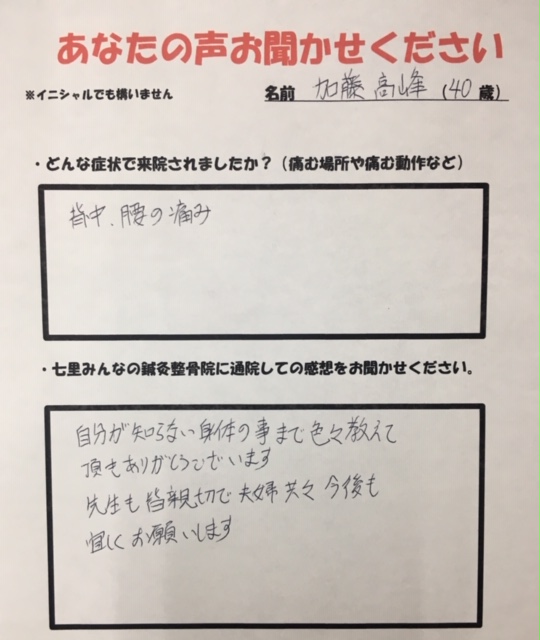 あなたの声お聞かせください
※イニシャルでも構いません
名前 加藤 高峰 (40 歳)
・どんな症状で来院されましたか？（痛む場所や痛む動作など）
背中、腰の痛み
・七里みんなの鍼灸整骨院に通院しての感想をお聞かせください。
自分が知らない身体の事まで色々教えて
頂きありがとうございます
先生も皆親切で夫婦共々今後も
宜しくお願いします